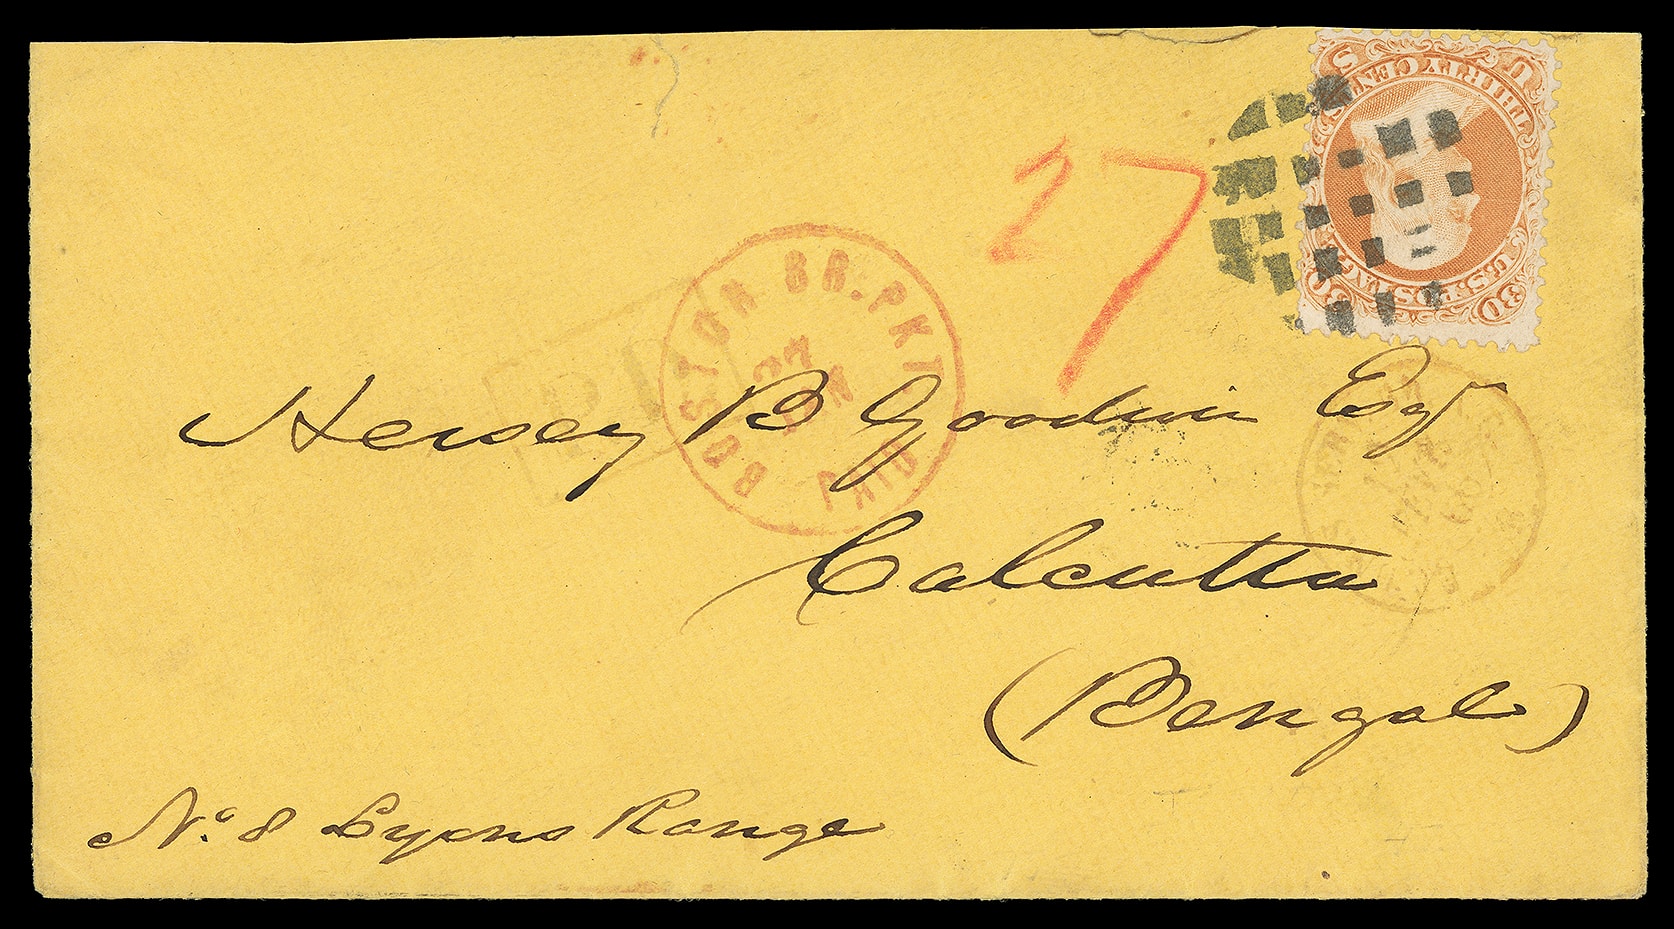 U S
THIRTY CENTS
30 U.S. POSTAGE 30
27
BOSTON BR. PKT
27
JAN
PAID
P.D.
Hersey B Goodwin Esq
Calcutta
(Bengal)
No. 8 Lyons Range